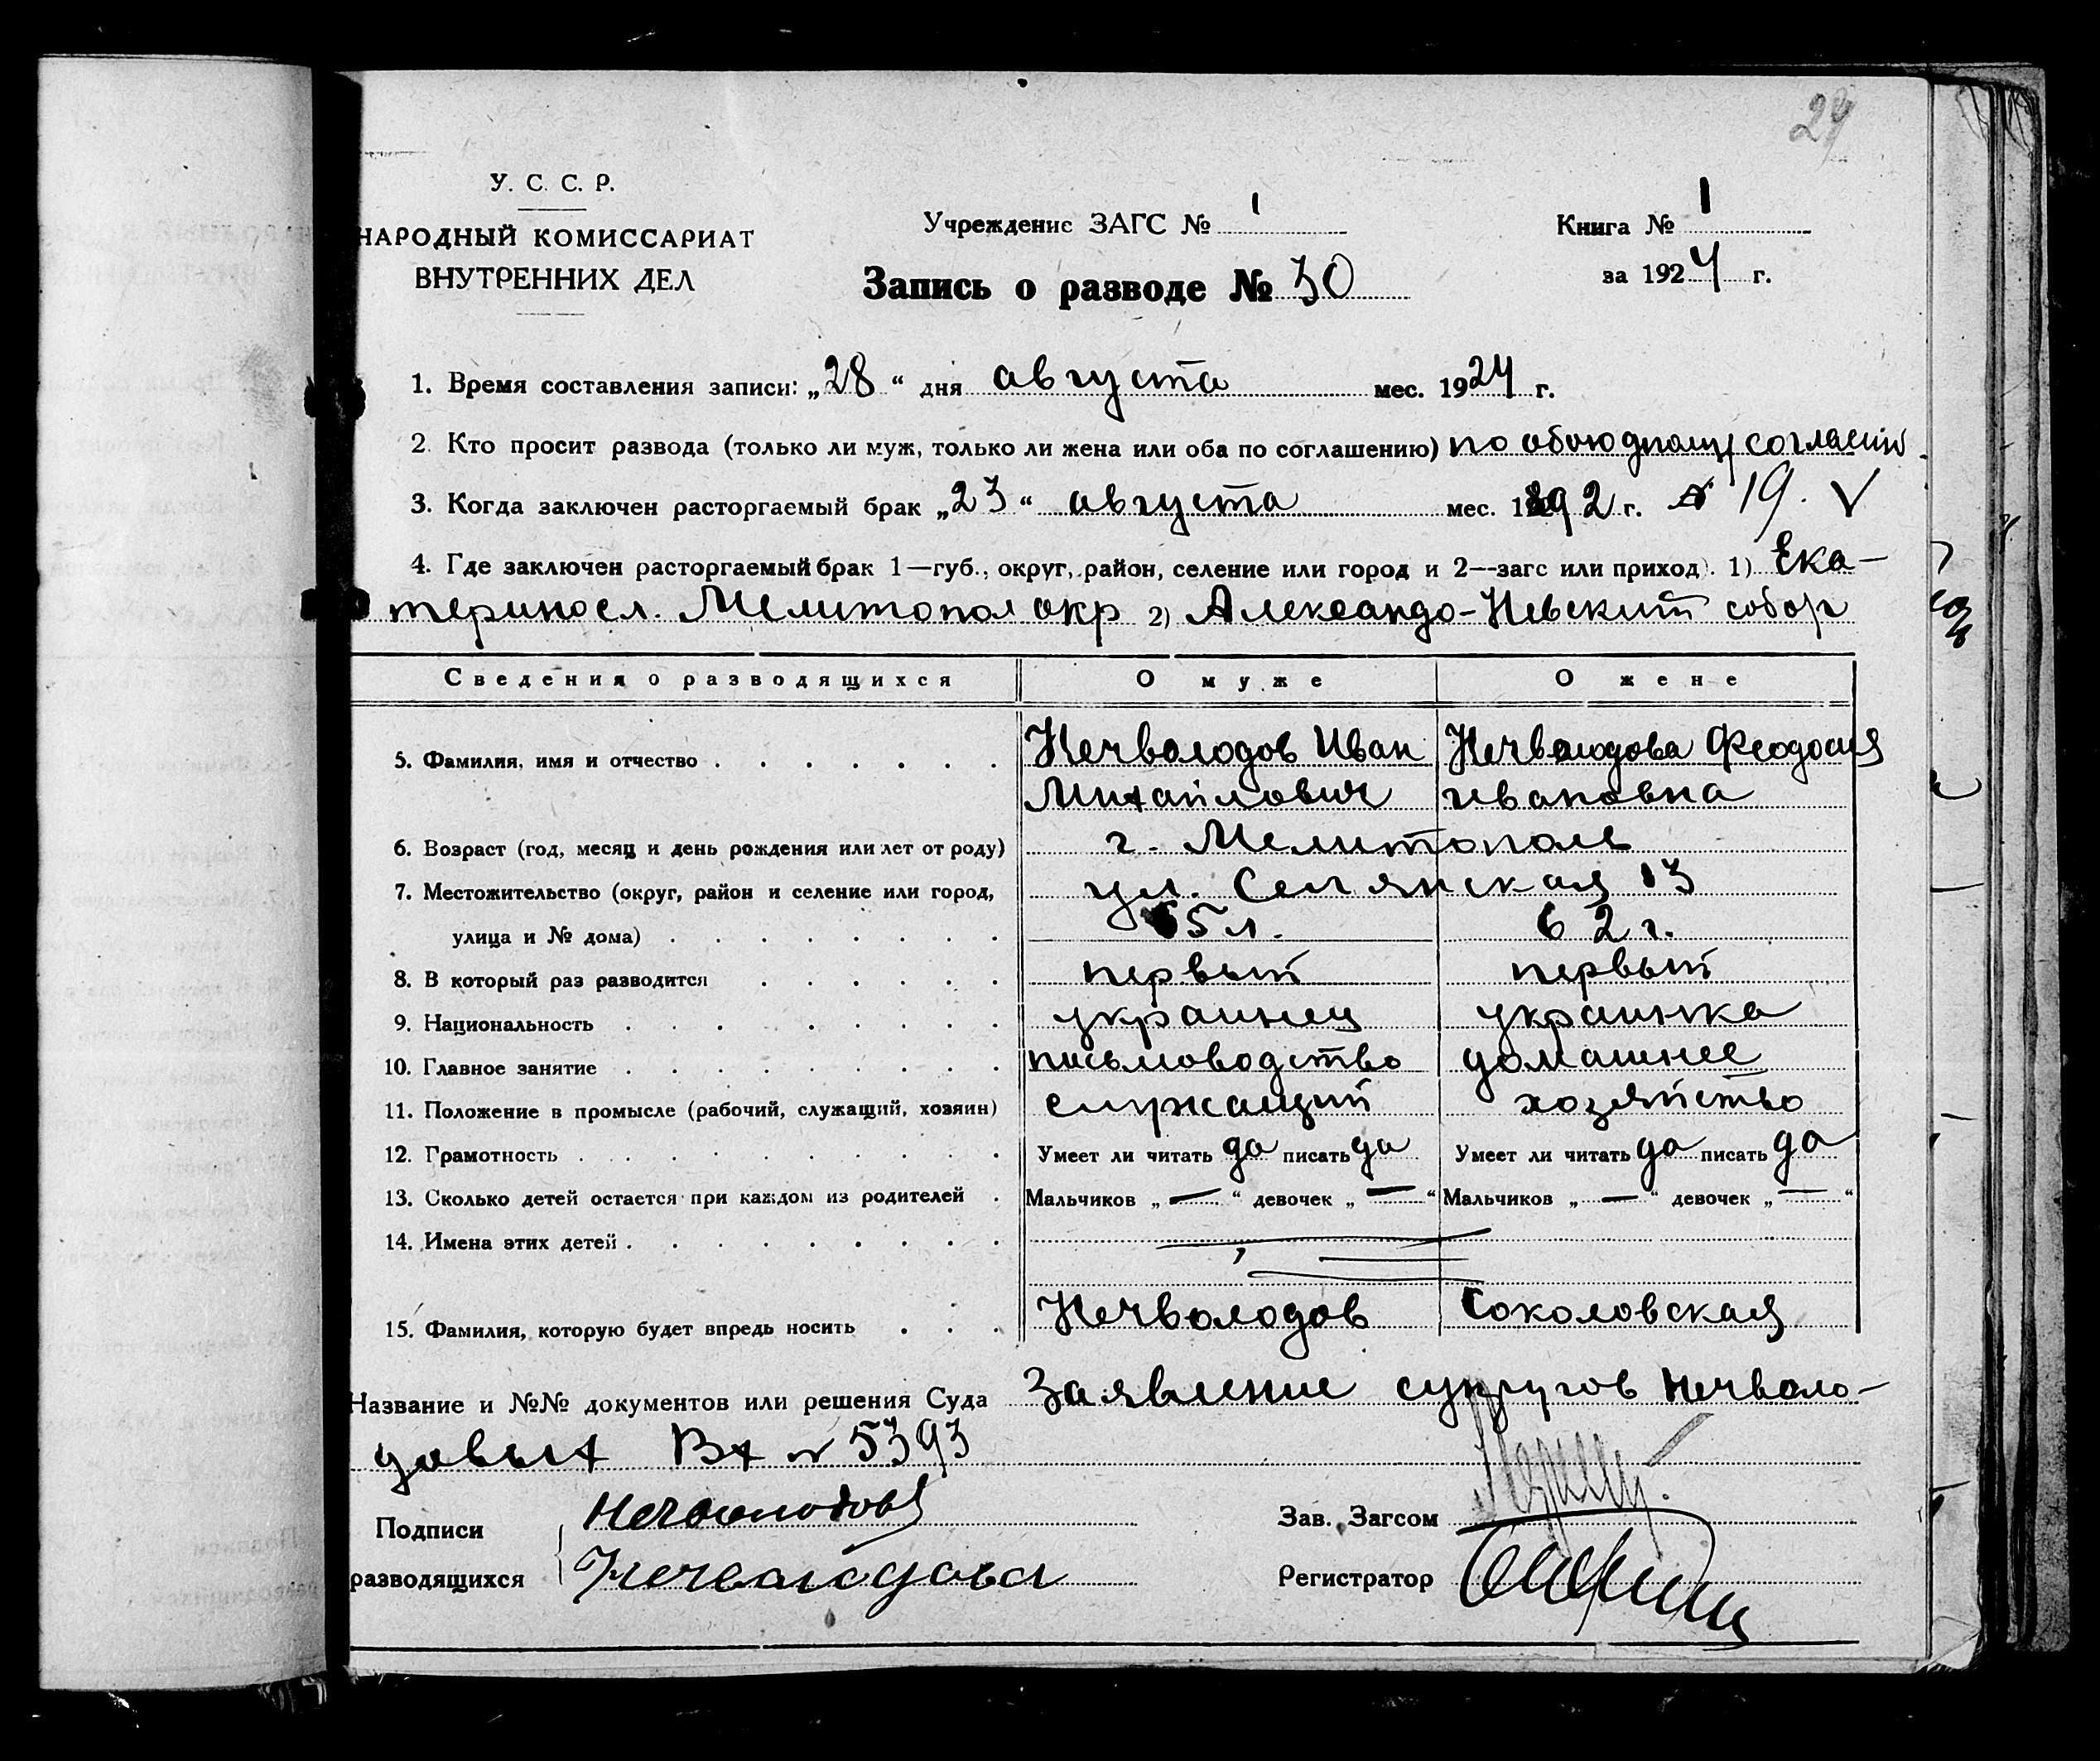 29
У. С. С. Р.
НАРОДНЫЙ КОМИССАРИАТ
ВНУТРЕННИХ ДЕЛ
Учреждение ЗАГС № 1
Запись о разводе № 30
Книга № 1
за 1924 г.
1. Время составления записи: „28“ дня августа мес. 1924 г.
2. Кто просит развода (только ли муж, только ли жена или оба по соглашению) по обоюдному согласию
3. Когда заключен расторгаемый брак „23“ августа мес. 1892 г. 19. V
4. Где заключен расторгаемый брак 1—губ., округ, район, селение или город и 2—загс или приход). 1) Ека-
териносл. Мелитопол окр 2) Александо-Невский собор
Сведения о разводящихся О муже О жене
5. Фамилия, имя и отчество Нечволодов Иван Нечволодова Феодосия
Михайлович Ивановна
6. Возраст (год, месяц и день рождения или лет от роду) г. Мелитополь
7. Местожительство (округ, район и селение или город, ул. Селянская 13
улица и № дома) 65 л. 62 г.
8. В который раз разводится первый первый
9. Национальность украинец украинка
10. Главное занятие письмоводство домашнее
11. Положение в промысле (рабочий, служащий, хозяин) служащий хозяйство
12. Грамотность Умеет ли читать да писать да Умеет ли читать да писать да
13. Сколько детей остается при каждом из родителей Мальчиков „—“ девочек „—“ Мальчиков „—“ девочек „—“
14. Имена этих детей
15. Фамилия, которую будет впредь носить Нечволодов Соколовская
Название и №№ документов или решения Суда Заявление супругов Нечволо-
довых Вх № 5393
Подписи Нечволодов
разводящихся Нечволодова
Зав. Загсом
Регистратор